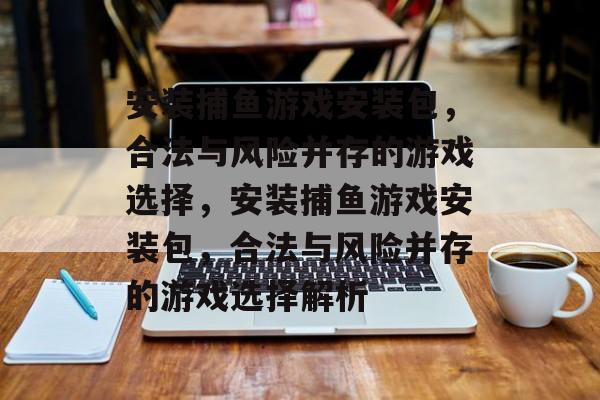 安装捕鱼游戏安装包，
合法与风险并存的游戏
选择，安装捕鱼游戏安
装包，合法与风险并存
的游戏选择解析